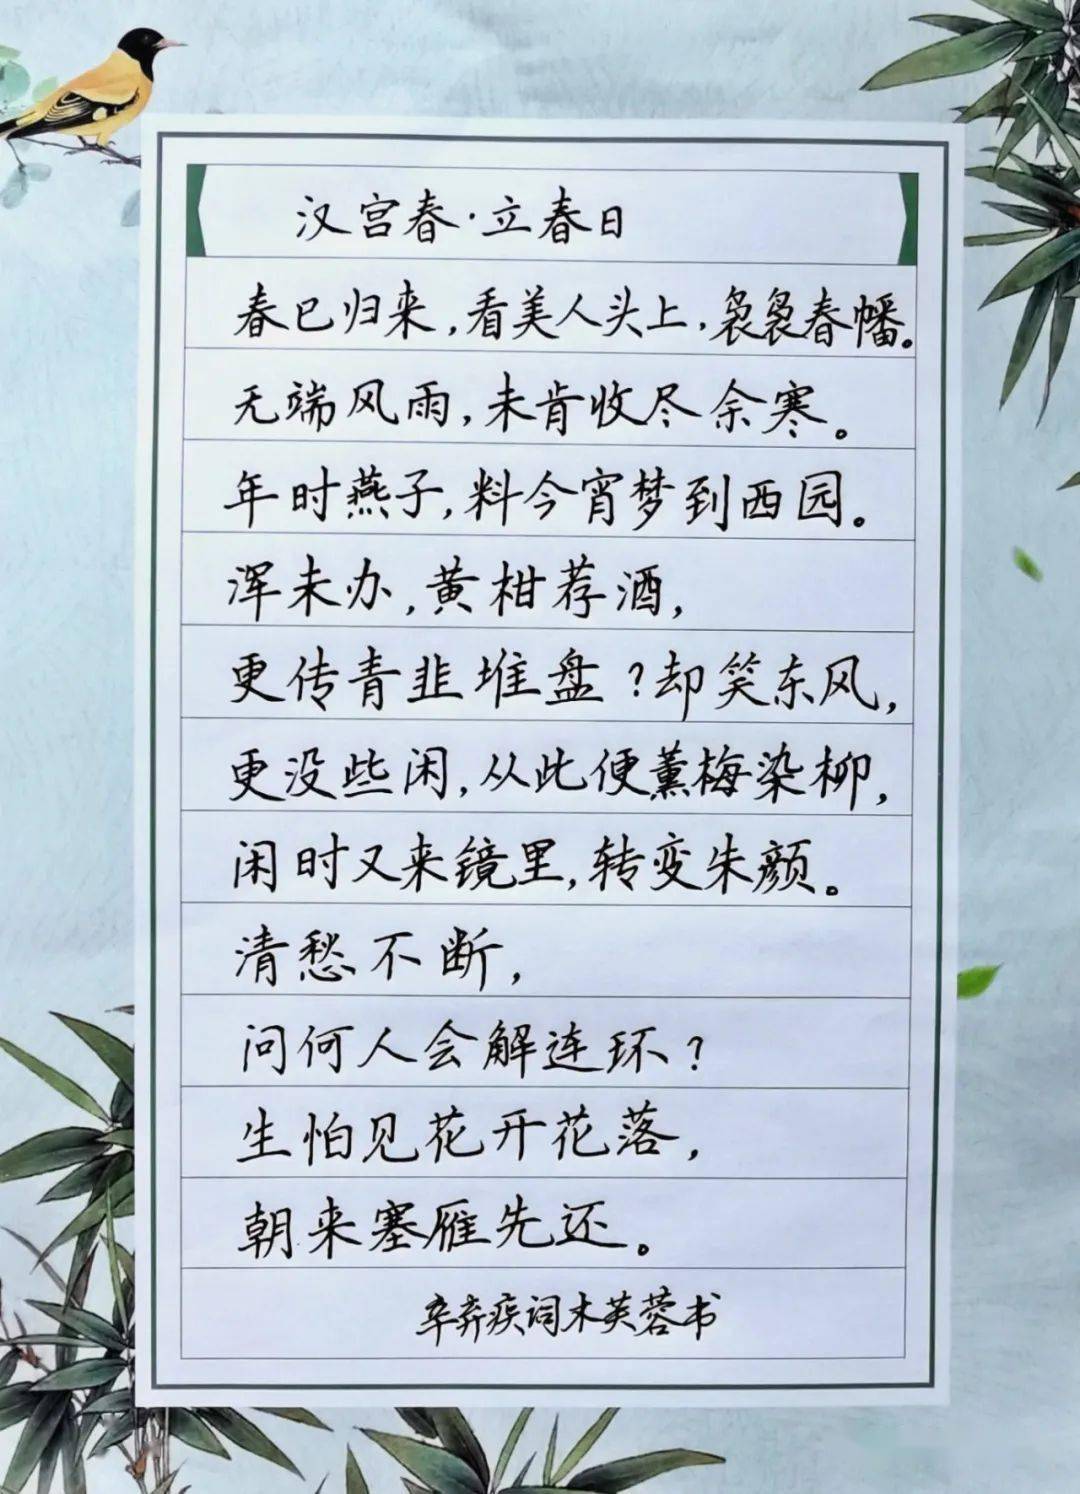 汉宫春·立春日
春已归来,看美人头上,袅袅春幡。
无端风雨,未肯收尽余寒。
年时燕子,料今宵梦到西园。
浑未办,黄柑荐酒,
更传青韭堆盘?却笑东风,
更没些闲,从此便薰梅染柳,
闲时又来镜里,转变朱颜。
清愁不断,
问何人会解连环?
生怕见花开花落,
朝来塞雁先还。
辛弃疾词木芙蓉书